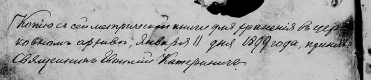 Копію съ сей метрической книги для храненія въ цер-
ковномъ архивѣ, Января 11 дня 1899 года, принялъ
Священникъ Евѳимій Катериничъ